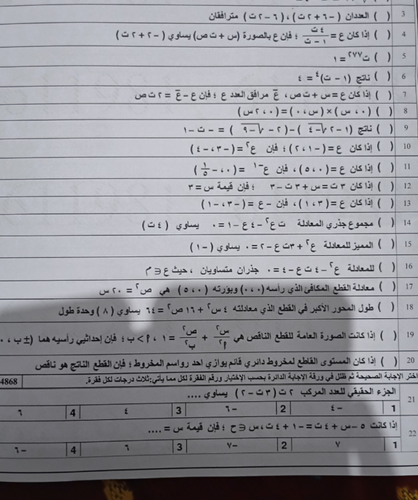 3 ( ) العددان (-٦+٢ت)، (٦-٢ت) مترافقان
4 ( ) إذا كان ع = ٤ت/(١-ت) ؛ فإن ع بالصورة (س + ت ص) يساوي (-٢+٢ت)
5 ( ) ت^٢٧٧ = ١
6 ( ) ناتج (١-ت)^٤ = ٤
7 ( ) إذا كان ع = س + ت ص، ع̄ مرافق العدد ع ؛ فإن ع - ع̄ = ٢ت ص
8 ( ) (٠، س) × (س، ٠) = (٠، ٢س)
9 ( ) ناتج (١-٢√-٤) - (٢-√-٩) = -ت-١
10 ( ) إذا كان ع = (-١، ٢)؛ فإن ع^٢ = (-٣، -٤)
11 ( ) إذا كان ع = (٠، ٥)، فإن ع^-١ = (٠، -١/٥)
12 ( ) إذا كان ٣ت = س + ٣ت - ٣ ؛ فإن قيمة س = ٣
13 ( ) إذا كان ع = (٣، ١)، فإن -ع = (-٣، -١)
14 ( ) مجموع جذري المعادلة ت ع^٢ - ٤ع - ١ = ٠ يساوي (٤ت)
15 ( ) المميز للمعادلة ع^٢ + ٣ت ع - ٢ = ٠ يساوي (-١)
16 ( ) للمعادلة ع^٢ - ٤ت ع - ٤ = ٠ جذران متساويان ، حيث ع ∈ م
17 ( ) معادلة القطع المكافئ الذي رأسه (٠، ٠) وبؤرته (٥، ٠) هي ص^٢ = ٢٠س
18 ( ) طول المحور الأكبر في القطع الذي معادلته ٤س^٢ + ١٦ص^٢ = ٦٤ يساوي (٨) وحدة طول
19 ( ) إذا كانت الصورة العامة للقطع الناقص هي س^٢/أ^٢ + ص^٢/ب^٢ = ١، أ > ب؛ فإن إحداثيي رأسيه هما (±ب، ٠
20 ( ) إذا كان المستوى القاطع لمخروط دائري قائم يوازي احد رواسم المخروط؛ فإن القطع الناتج هو ناقص
اختر الإجابة الصحيحة ثم ظلل في ورقة الإجابة الدائرة بحسب الاختيار ورقم الفقرة لكل مما يأتي: ثلاث درجات لكل فقرة. 4868
21 الجزء الحقيقي للعدد المركب ٢ت(٣ت-٢) يساوي ....
1 -٤ 2 -٦ 3 ٤ 4 ٦
22 إذا كانت ٥-س+٤ت = -١+٤ت، س ∈ ح ؛ فإن قيمة س = ....
1 ٧ 2 -٧ 3 ٦ 4 -٦